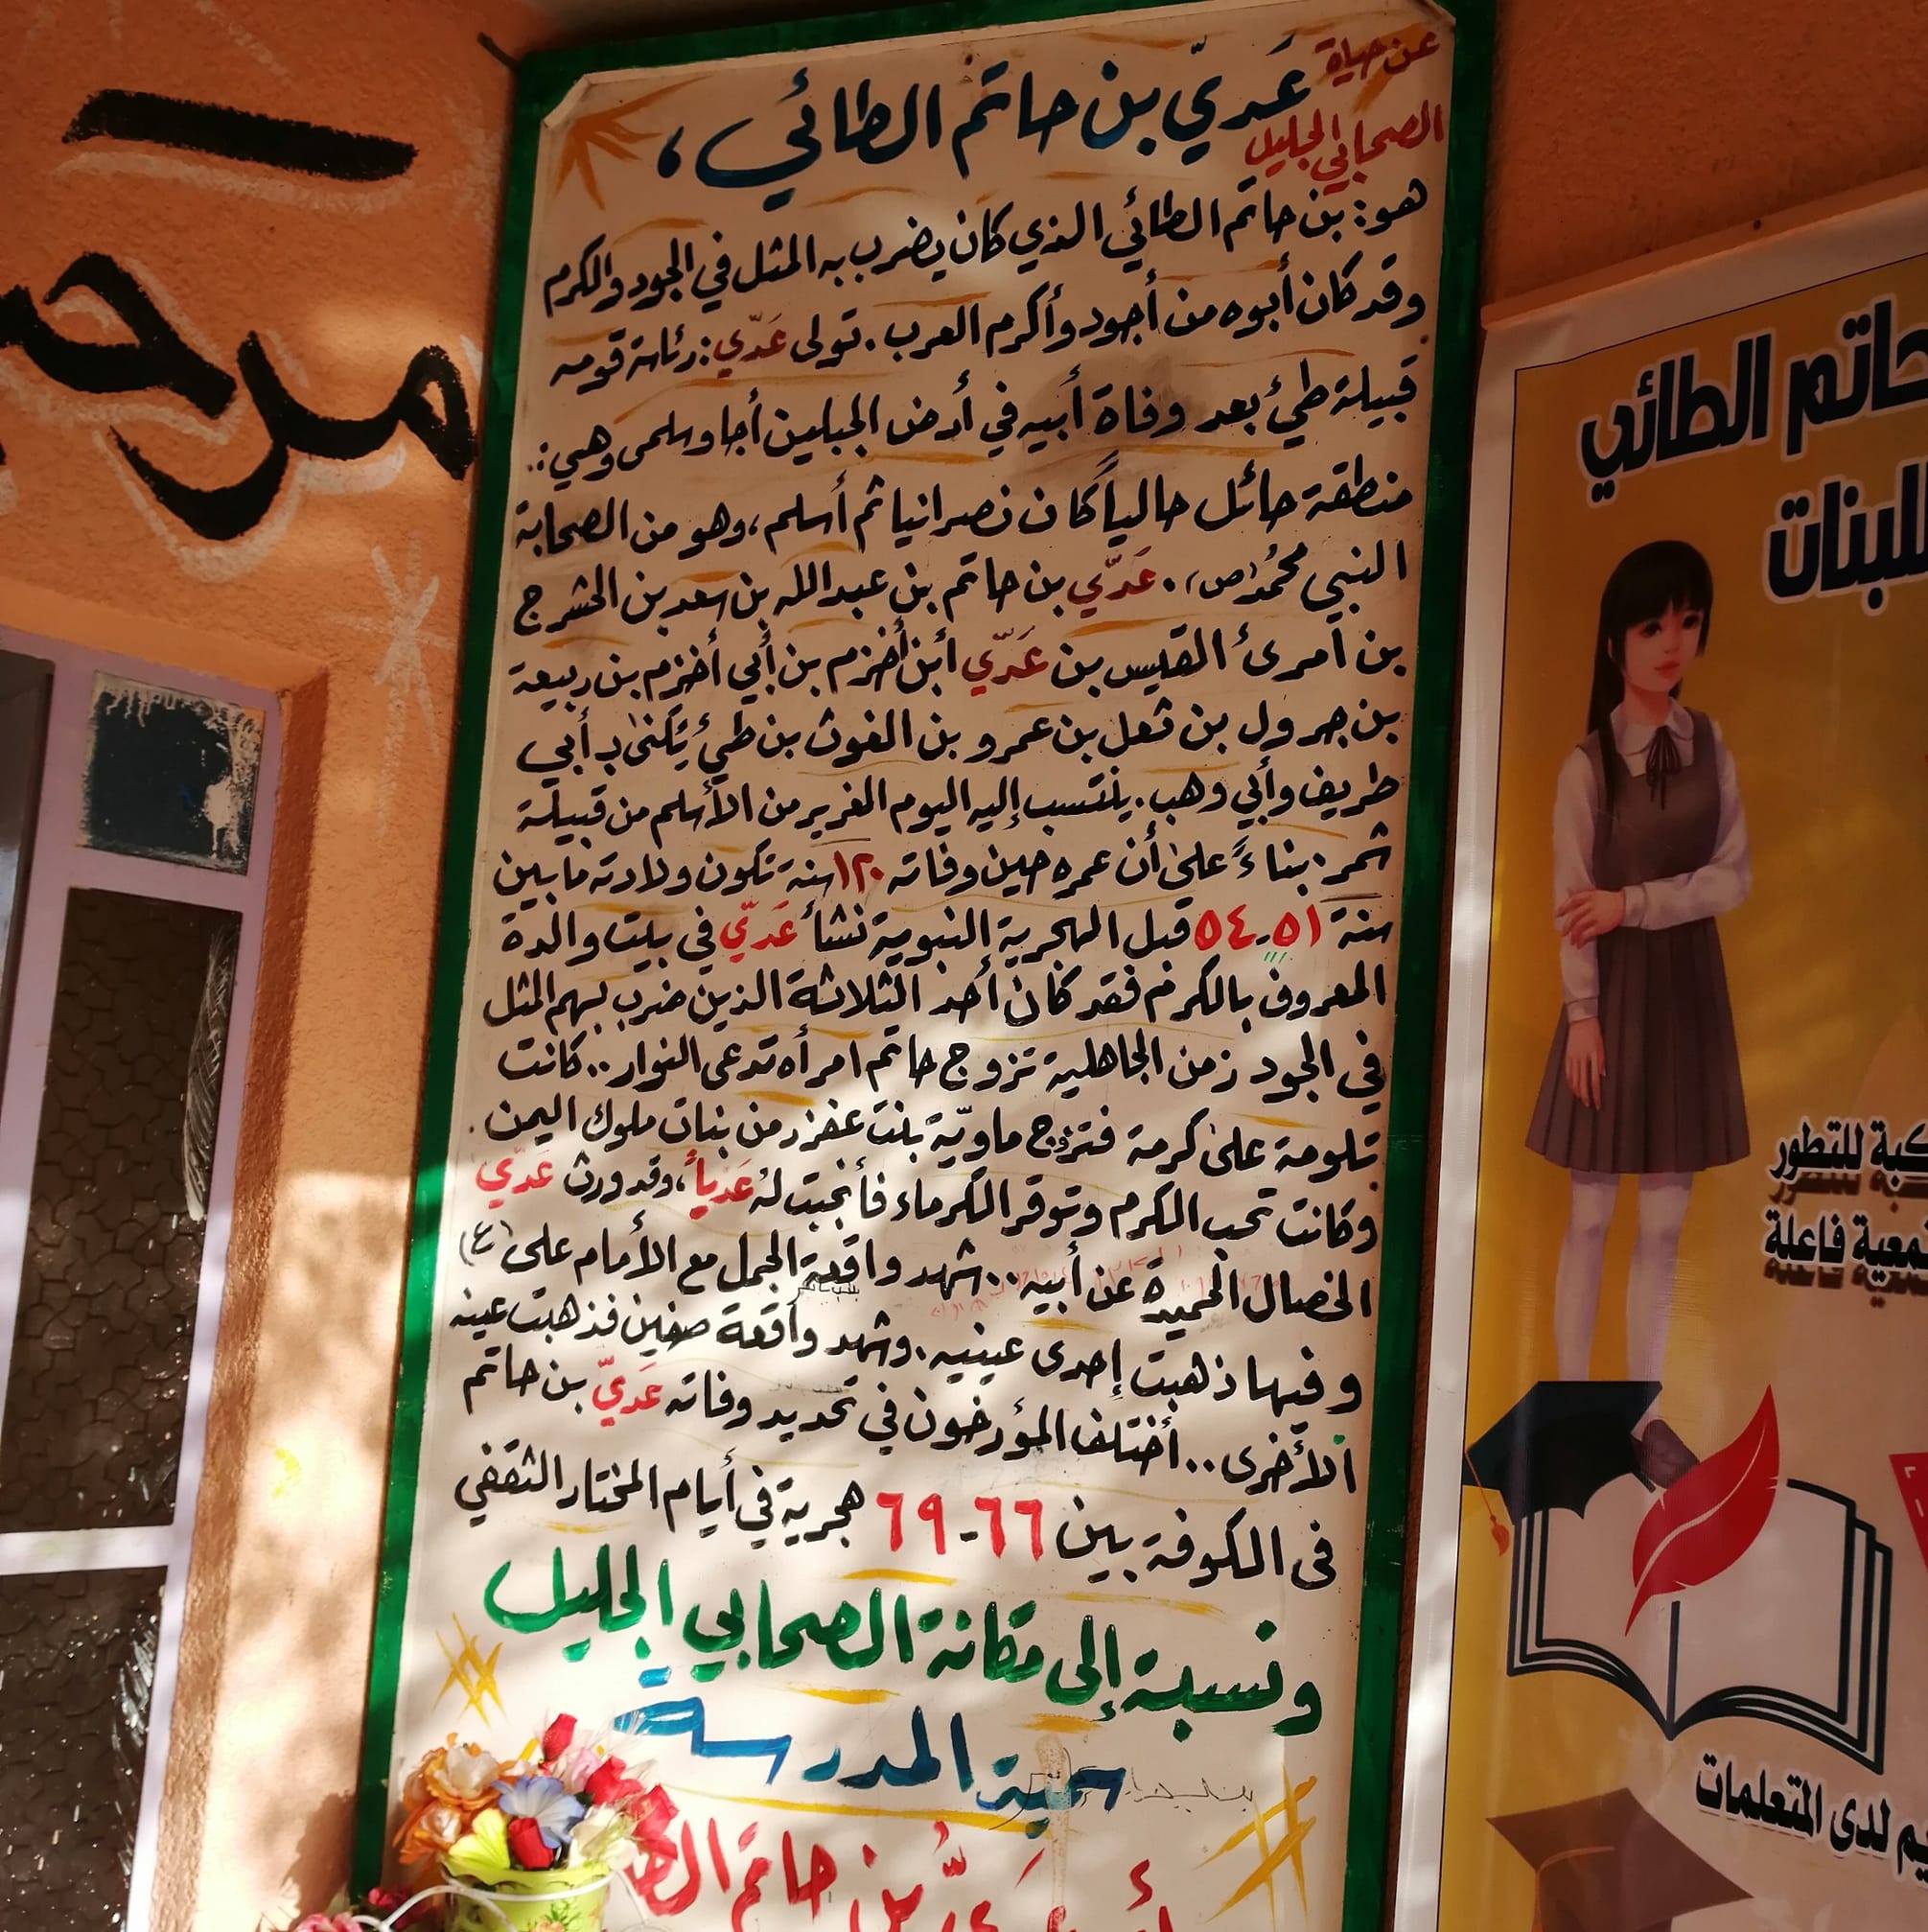 عن حياة
الصحابي الجليل
عَديّ بن حاتم الطائي ،
هو: بن حاتم الطائي الذي كان يضرب به المثل في الجود والكرم
وقد كان أبوه من أجود وأكرم العرب . تولى عَدّي : رئاسة قومه
قبيلة طيء بعد وفاة أبيه في أرض الجبلين أجا وسلمى وهي :.
منطقة حائل حالياً كان نصرانيا ثم أسلم ، وهو من الصحابة
النبي محمُد (ص) . عَدّي بن حاتم بن عبدالله بن سعد بن الحشرج
بن أمرئ القيس بن عَدّي أبن أخزم بن أبي أخزم بن ربيعة
بن جرول بن ثعل بن عمرو بن الغوث بن طيء يُكنى بـ أبي
طريف وأبي وهب . ينتسب إليه اليوم الغرير من الأسلم من قبيلة
شمر . بناءً على أن عمره حين وفاته ١٢٠ سنة تكون ولادته مابين
سنة ٥١-٥٤ قبل الهجرية النبوية نشأ عَدّي في بيت والدة
المعروف بالكرم فقد كان أحد الثلاثة الذين ضرب بهم المثل
في الجود زمن الجاهلية تزوج حاتم امرأه تدعى النوار .. كانت
تلومة على كرمة فتزوج ماويّة بنت عفزر من بنات ملوك اليمن .
وكانت تحب الكرم وتوقر الكرماء فأنجبت لهُ عَدياً ، وقد ورث عَدّي
الخصال الحميدة عن أبيه .. شهد واقعة الجمل مع الأمام على (ع)
وفيها ذهبت إحدى عينيه . وشهد واقعة صفين فذهبت عينه
الأخرى .. أختلف المؤرخون في تحديد وفاته عَديّ بن حاتم
في الكوفة بين ٦٦-٦٩ هجرية في أيام المختار الثقفي
ونسبة إلى مكانة الصحابي الجليل
سميت المدرسة
بن حاتم
مرح
حاتم الطائي
للبنات
للتطور
فاعلة
لدى المتعلمات